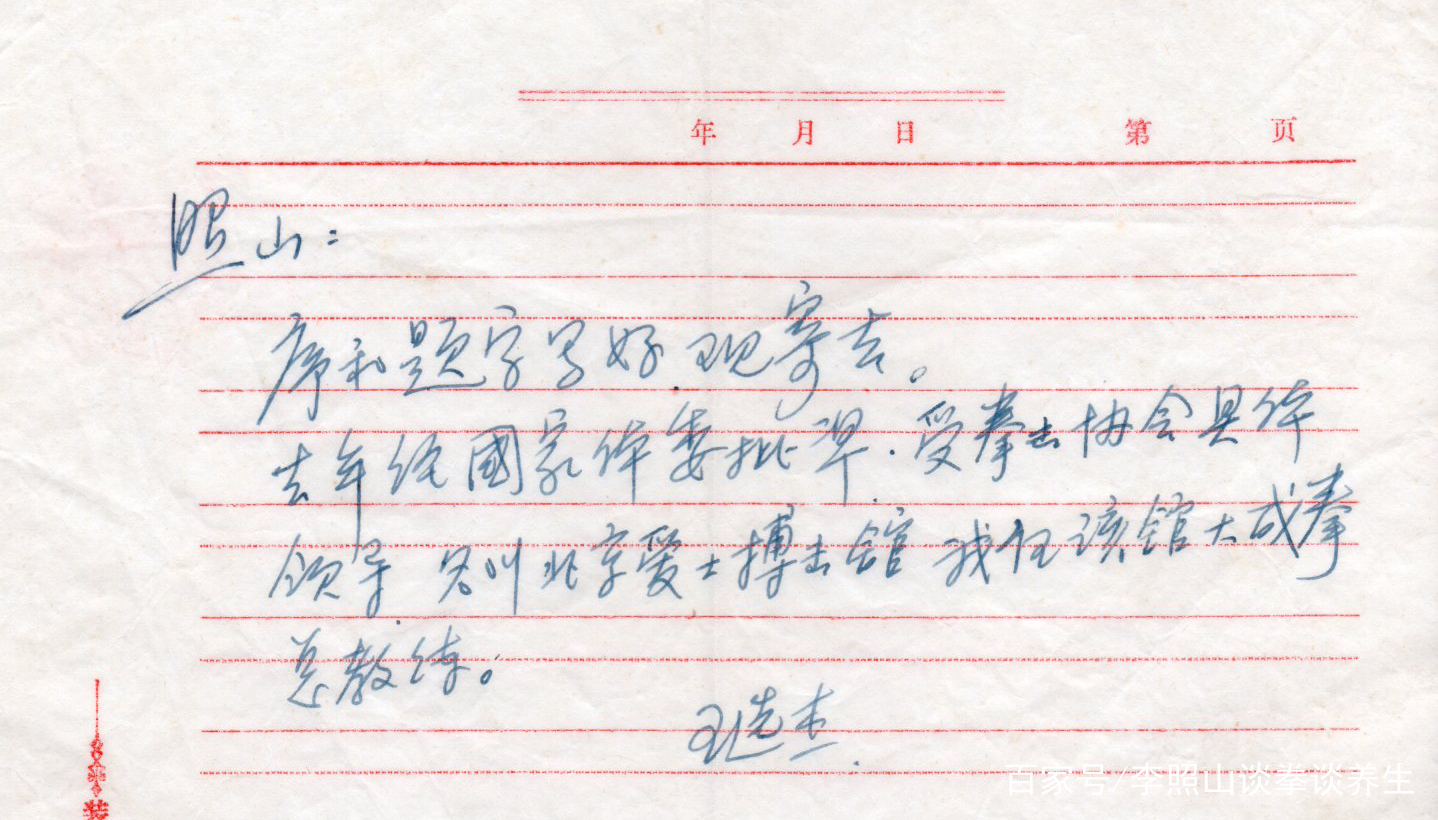 年 月 日 第 页
照山：
序和题字写好，现寄去。
去年经國家体委批准，受拳击协会具体
领导，名叫北京爱士搏击馆，我任该馆大成拳
总教练。
王选杰
装
百家号/李照山谈拳谈养生